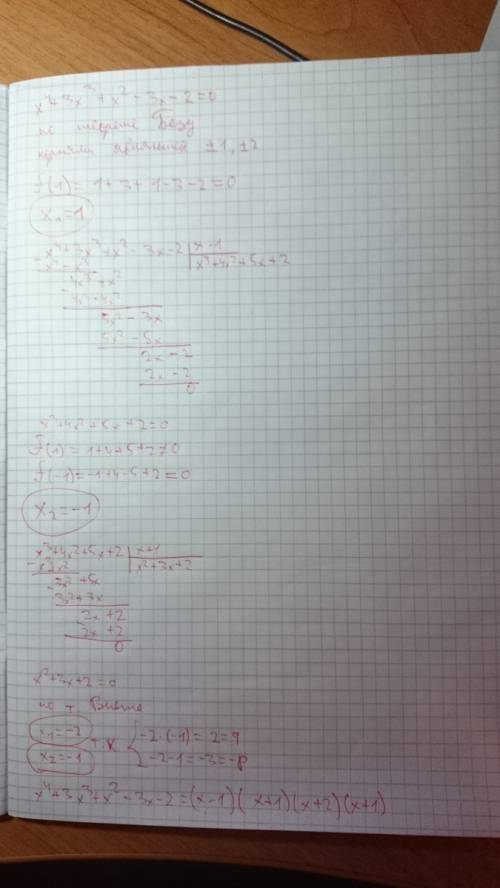 x⁴+3x³+x²-3x-2=0
по теореме Безу
корнями являются ±1, ±2
f(1)=1+3+1-3-2=0
x₁=1
x⁴+3x³+x²-3x-2 | x-1
- x⁴-x³ | x³+4x²+5x+2
4x³+x²
- 4x³-4x²
5x²-3x
5x²-5x
2x-2
2x-2
0
x³+4x²+5x+2=0
f(1)=1+4+5+2≠0
f(-1)=-1+4-5+2=0
x₂=-1
x³+4x²+5x+2 | x+1
- x³+x² | x²+3x+2
3x²+5x
- 3x²+3x
2x+2
- 2x+2
0
x²+3x+2=0
по т Виета
x₁=-2 т.к { -2·(-1)=2=q
x₂=-1 -2-1=-3=-p
x⁴+3x³+x²-3x-2=(x-1)(x+1)(x+2)(x+1)